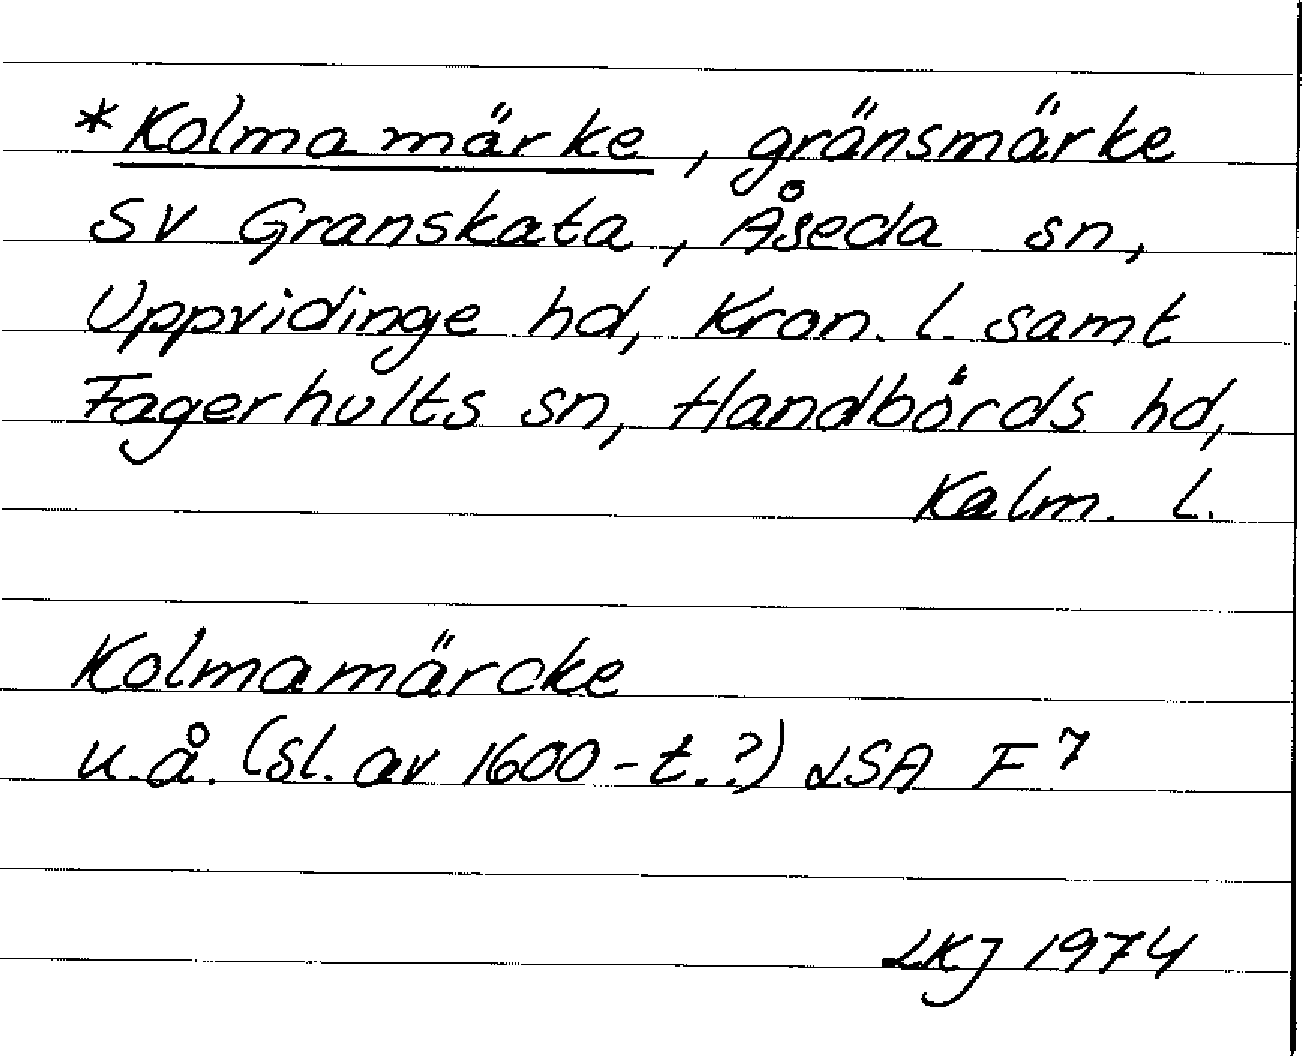 *Kolmamärke, gränsmärke
SV Granskata, Åseda sn,
Uppvidinge hd, Kron. l. samt
Fagerhults sn, Handbörds hd,
Kalm. l.
Kolmamärcke
u.å. (sl. av 1600-t.?) LSA F 7
LKJ 1974